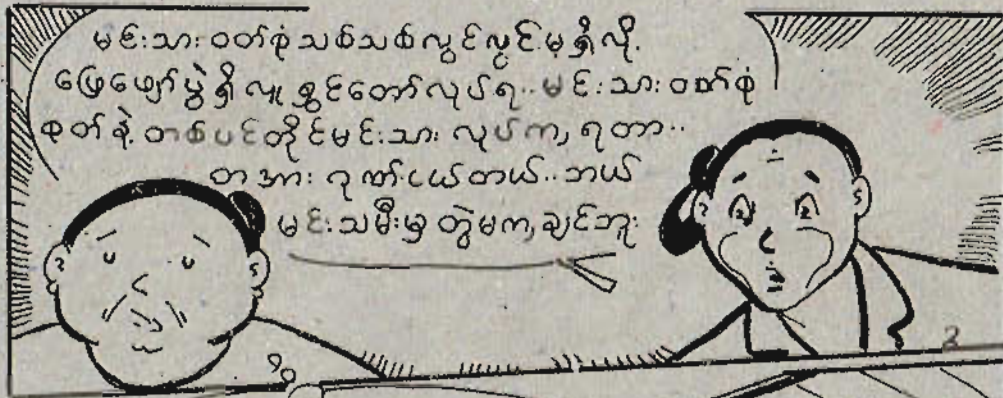 မင်းသားဝတ်စုံသစ်သစ်လွင်လွင်မရှိလို့
ဖြေဖျော်ပွဲရှိလူရွှင်တော်လုပ်ရ..မင်းသားဝတ်စုံ
စုတ်နဲ့တစ်ပင်တိုင်မင်းသားလုပ်က,ရတာ..
တအားဂုဏ်ငယ်တယ်..ဘယ်
မင်းသမီးမှတွဲမက,ချင်ဘူး
၃